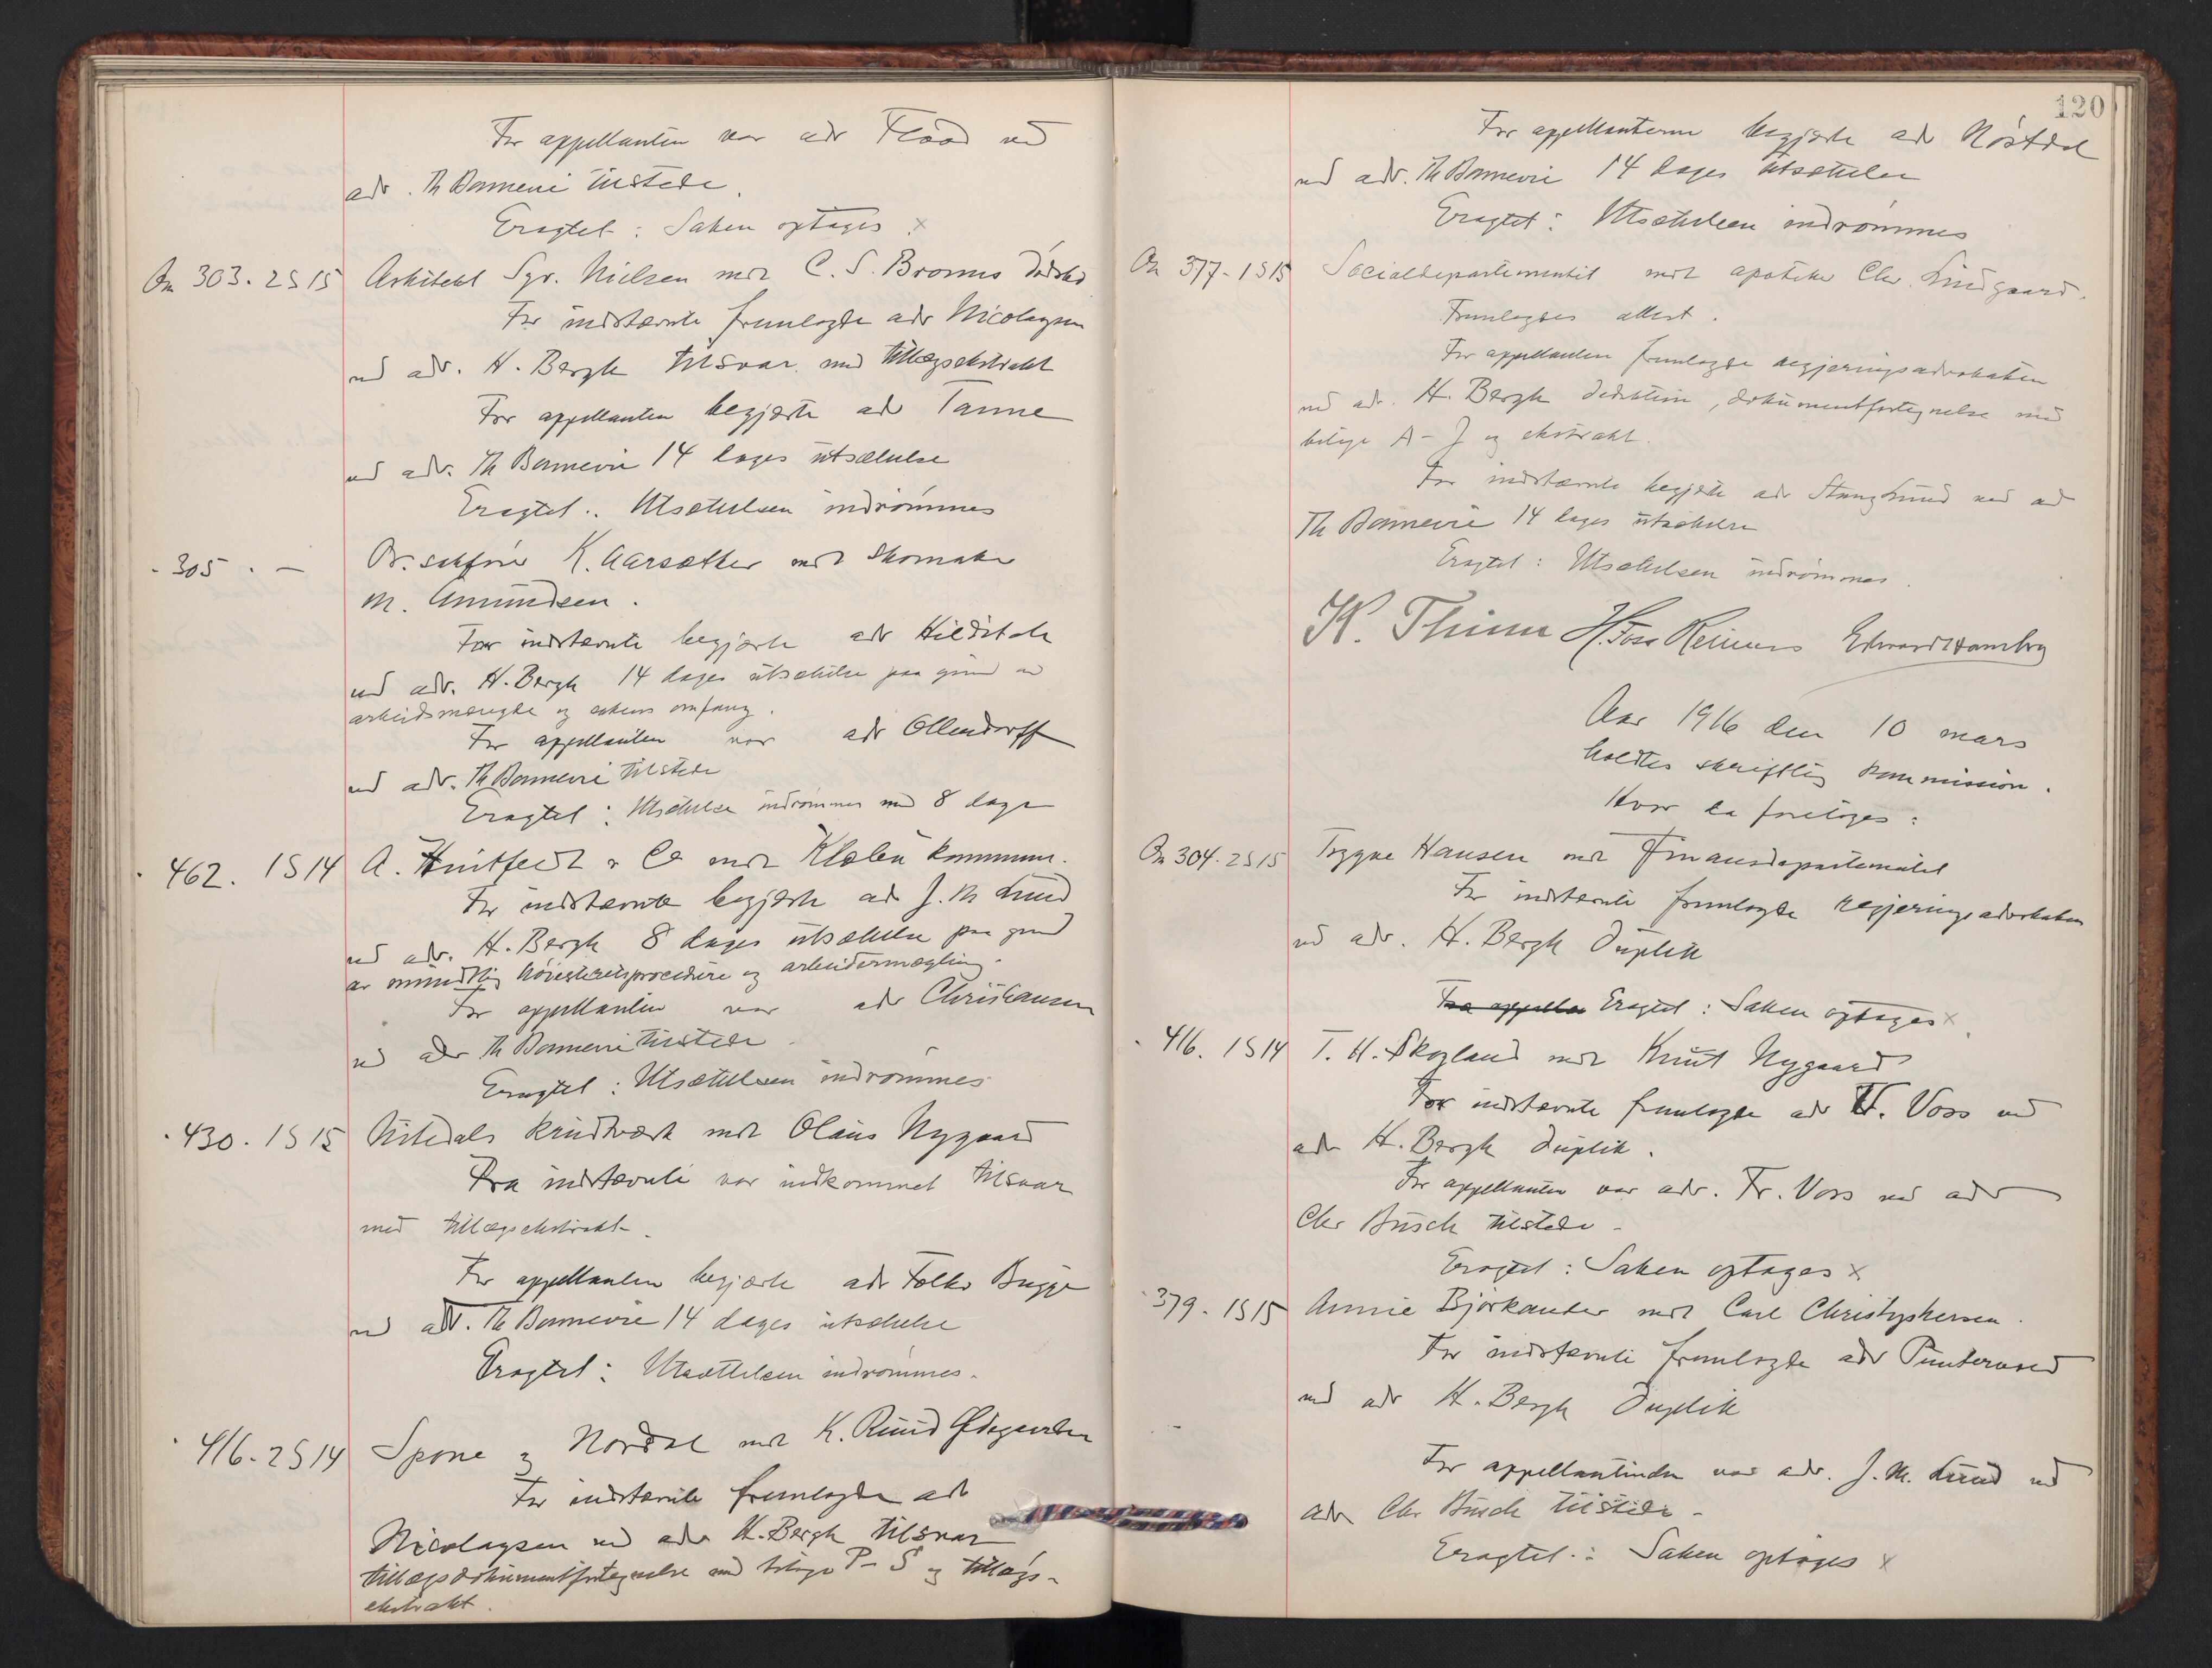 For appellanten var adv Flood ved
adv. Th Bonnevie tilstede.
Eragtet: Saken optages x
Ank 303. 2S15 Arkitekt Sgr. Nielsen mot C. S. Bromms dødsbo
For indstævnte fremlagde adv Nicolaysen
ved adv. H. Bergh tilsvar med tillægsekstrakt
For appellanten begjærte adv Tanne
ved adv. Th Bonnevie 14 dages utsættelse
Eragtet: Utsættelsen indrømmes
- 305 - — Or.sakfører K. Aarsæther mot skomaker
M. Amundsen.
For indstævnte begjærte adv Hilditch
ved adv. H. Bergh 14 dages utsættelse paa grund av
arbeidsmængde og sakens omfang.
For appellanten var adv Ollendorff
ved adv. Th Bonnevie tilstede
Eragtet: Utsættelse indrømmes med 8 dage
- 462. 1S14 A. Huitfeldt & Co mot Klæbu kommune.
For indstævnte begjærte adv J. M. Lund
ved adv. H. Bergh 8 dages utsættelse paa grund
av mundtlig høiesteretsprocedure og arbeidsmægling.
For appellanten var adv Christiansen
ved adv Th Bonnevie tilstede.
Eragtet: Utsættelsen indrømmes
- 430. 1S15 Nitedals Krudtværk mot Olaus Nygaard
Fra indstævnte var indkommet tilsvar
med tillægsekstrakt.
For appellanten begjærte adv Folke Bugge
ved adv. Th Bonnevie 14 dages utsættelse
Eragtet: Utsættelsen indrømmes.
- 416. 2S14 Spone og Nordal mot K. Ruud Ødegaarden
For indstævnte fremlagde adv
Nicolaysen ved adv H. Bergh tilsvar
tillægsdokumentfortegnelse med bilage P - S og tillægs-
ekstrakt.
120
For appellanterne begjærte adv Nøstdal
ved adv. Th Bonnevie 14 dages utsættelse
Eragtet: Utsættelsen indrømmes
Ank 377 - 1S15 Socialdepartementet mot apoteker Chr. Lindgaard.
Fremlagdes attest.
For appellanten fremlagde regjeringsadvokaten
ved adv. H. Bergh deduktion, dokumentfortegnelse med
bilage A - J og ekstrakt.
For indstævnte begjærte adv Stang Lund ved adv
Th Bonnevie 14 dages utsættelse
Eragtet: Utsættelsen indrømmes.
K. Thinn H. Foss Reimers Edvard Hambro
Aar 1916 den 10 mars
holdtes skriftlig kommission.
Hvor da foretoges:
Ank 304. 2S15 Trygve Hansen mot Finansdepartementet
For indstævnte fremlagde regjeringsadvokaten
ved adv. H. Bergh duplik
Fra appellan Eragtet: Saken optages x
- 416. 1S14 T. H. Skogland mot Knut Nygaard
For indstævnte fremlagde adv H. Voss ved
adv H. Bergh duplik.
For appellanten var adv. Fr. Voss ved adv
Chr Busch tilstede -
Eragtet: Saken optages x
- 379. 1S15 Annie Bjørkander mot Carl Christophersen.
For indstævnte fremlagde adv Puntervold
ved adv H. Bergh Duplik
For appellantinden var adv. J. M. Lund ved
adv Chr Busch tilstede -
Eragtet: Saken optages x